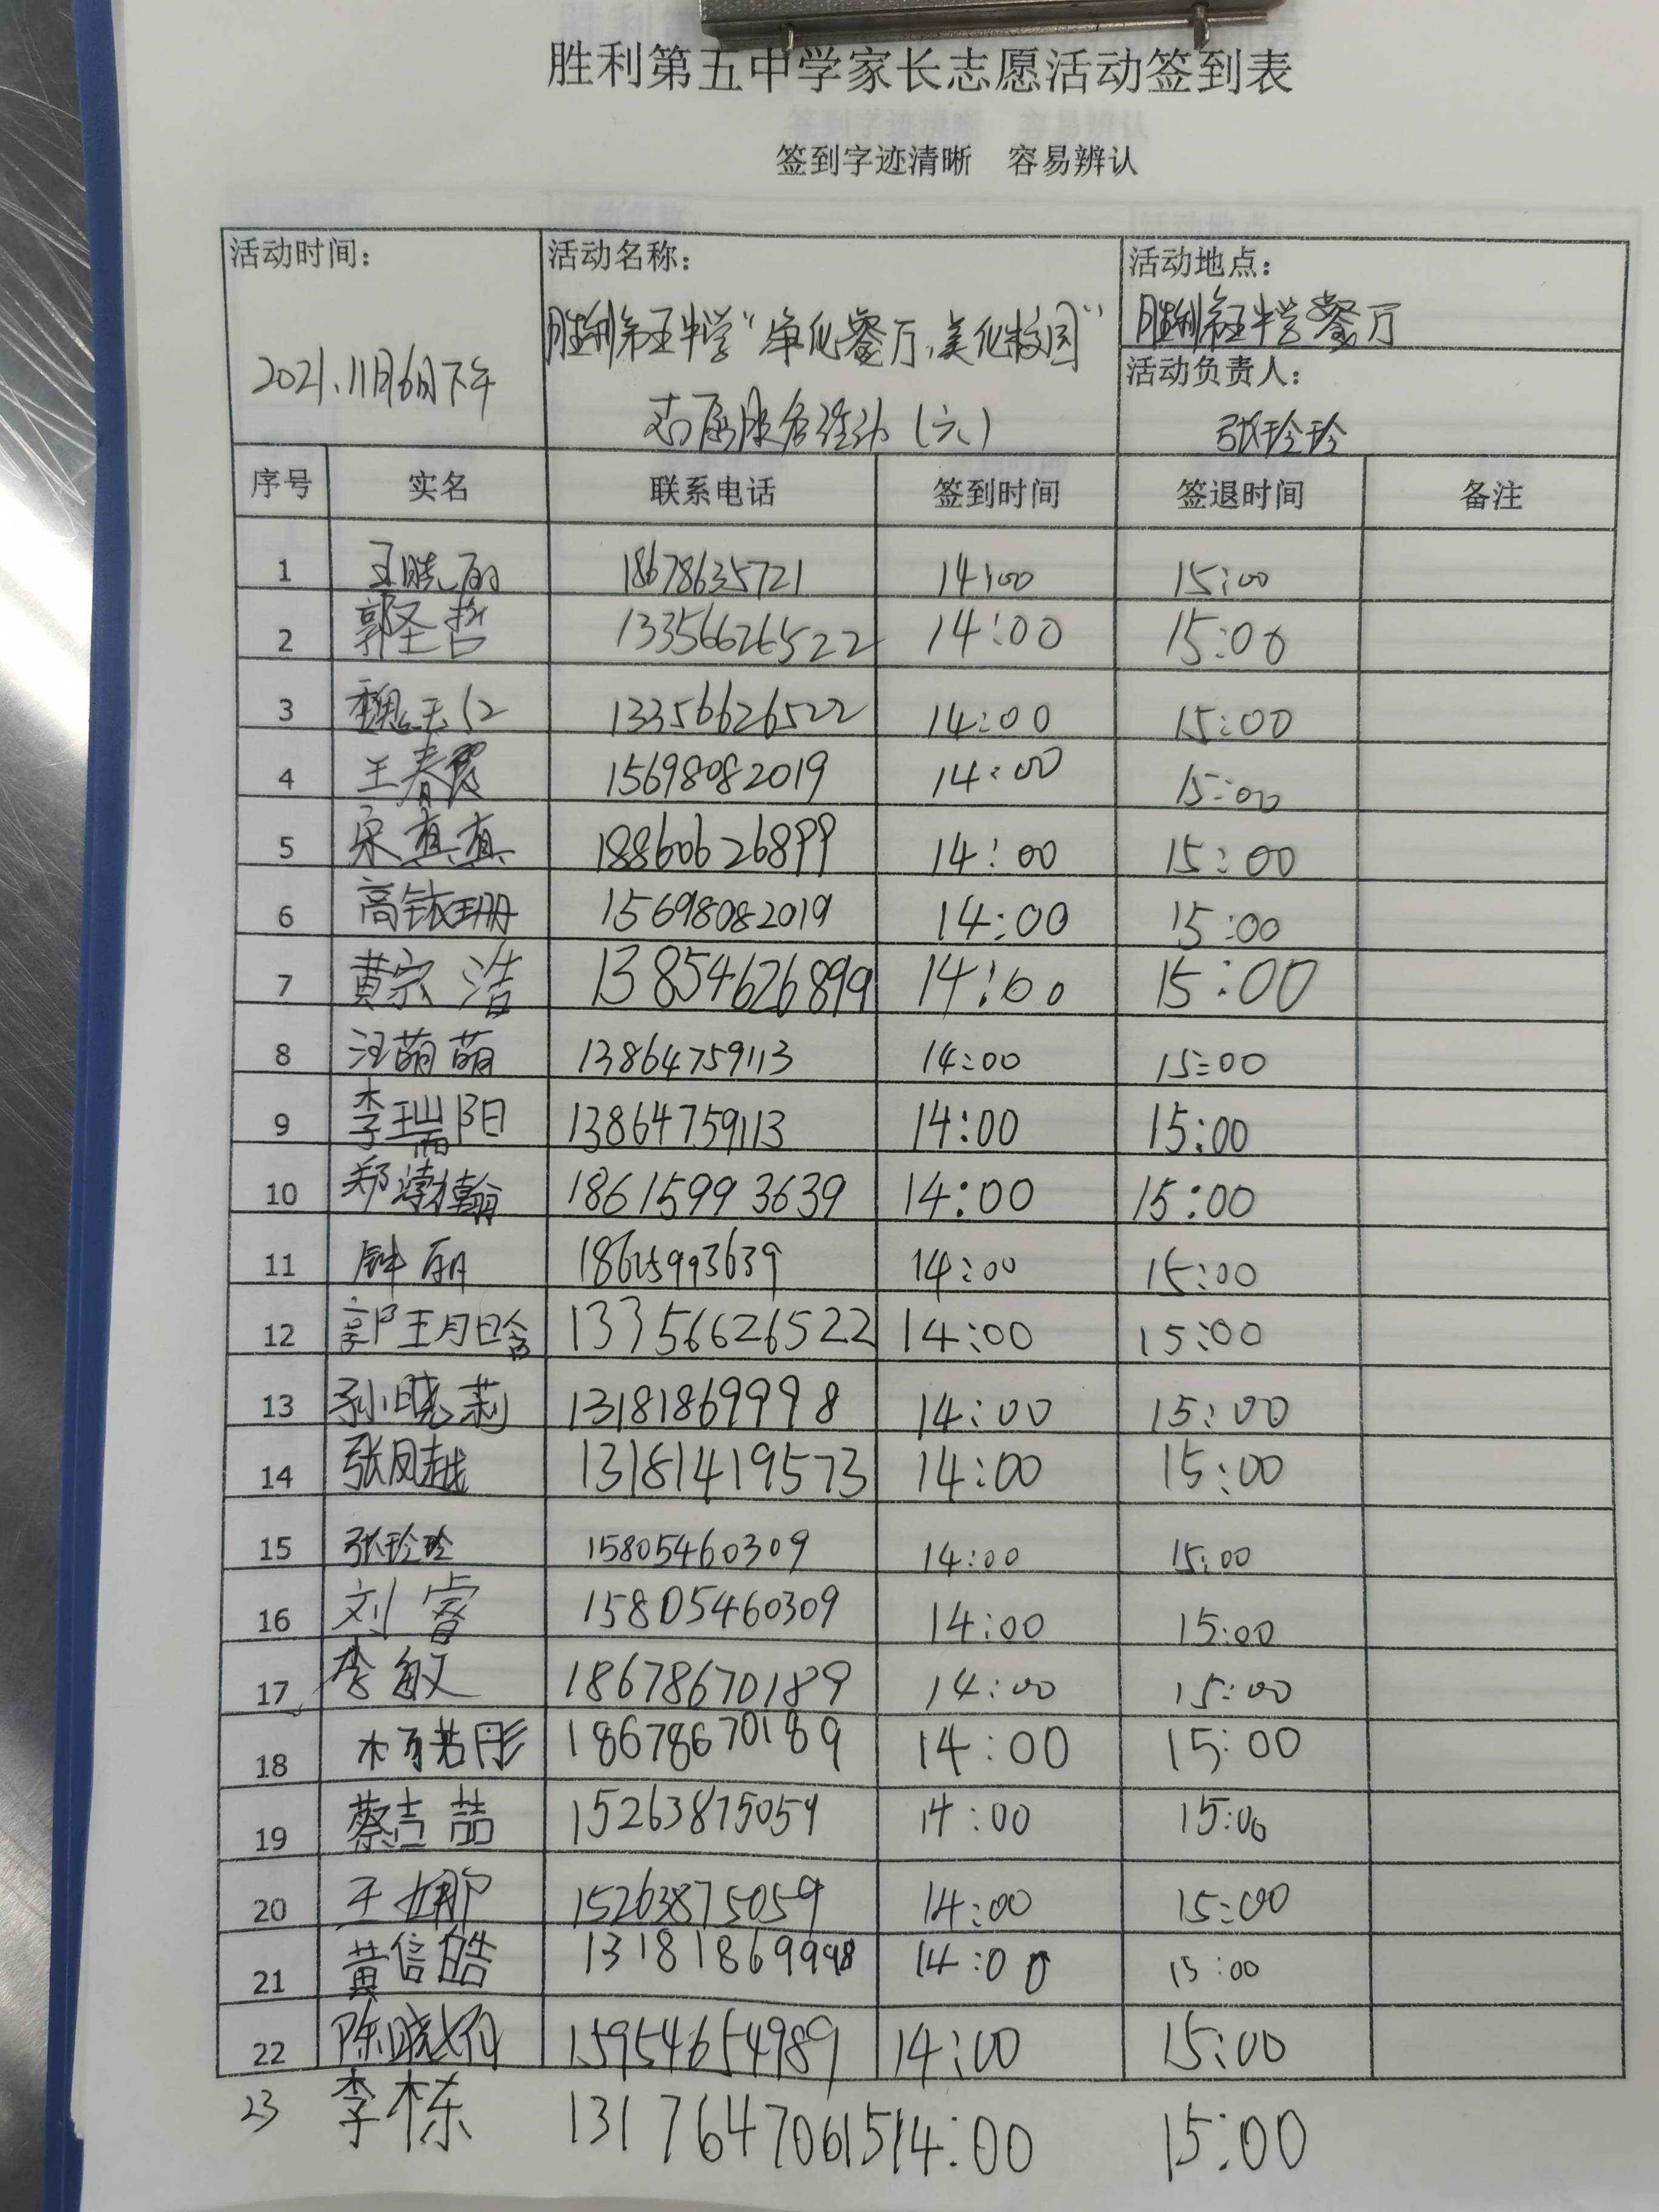 胜利第五中学家长志愿活动签到表
签到字迹清晰 容易辨认
活动时间： 活动名称： 活动地点：
胜利第五中学“净化餐厅、美化校园” 胜利第五中学餐厅
2021.11月6日下午 活动负责人：
志愿服务活动（六） 张玲玲
序号 实名 联系电话 签到时间 签退时间 备注
1 王晓丽 18678635721 14:00 15:00
2 郭圣哲 13356626522 14:00 15:00
3 魏玉红 13356626522 14:00 15:00
4 王春霞 15698082019 14:00 15:00
5 宋真真 18860626899 14:00 15:00
6 高钰珊 15698082019 14:00 15:00
7 黄宗浩 13854626899 14:00 15:00
8 汪萌萌 13864759113 14:00 15:00
9 李瑞阳 13864759113 14:00 15:00
10 郑渤翰 18615993639 14:00 15:00
11 钟丽 18615993639 14:00 15:00
12 郭玥晗 13356626522 14:00 15:00
13 孙晓莉 13181869998 14:00 15:00
14 张凤越 13181419573 14:00 15:00
15 张玲玲 15805460309 14:00 15:00
16 刘睿 15805460309 14:00 15:00
17 李敏 18678670189 14:00 15:00
18 若彤 18678670189 14:00 15:00
19 蔡喆 15263875059 14:00 15:00
20 王娜 15263875059 14:00 15:00
21 黄信皓 13181869998 14:00 15:00
22 陈晓 15954654989 14:00 15:00
23 李栋 13176470615 14:00 15:00